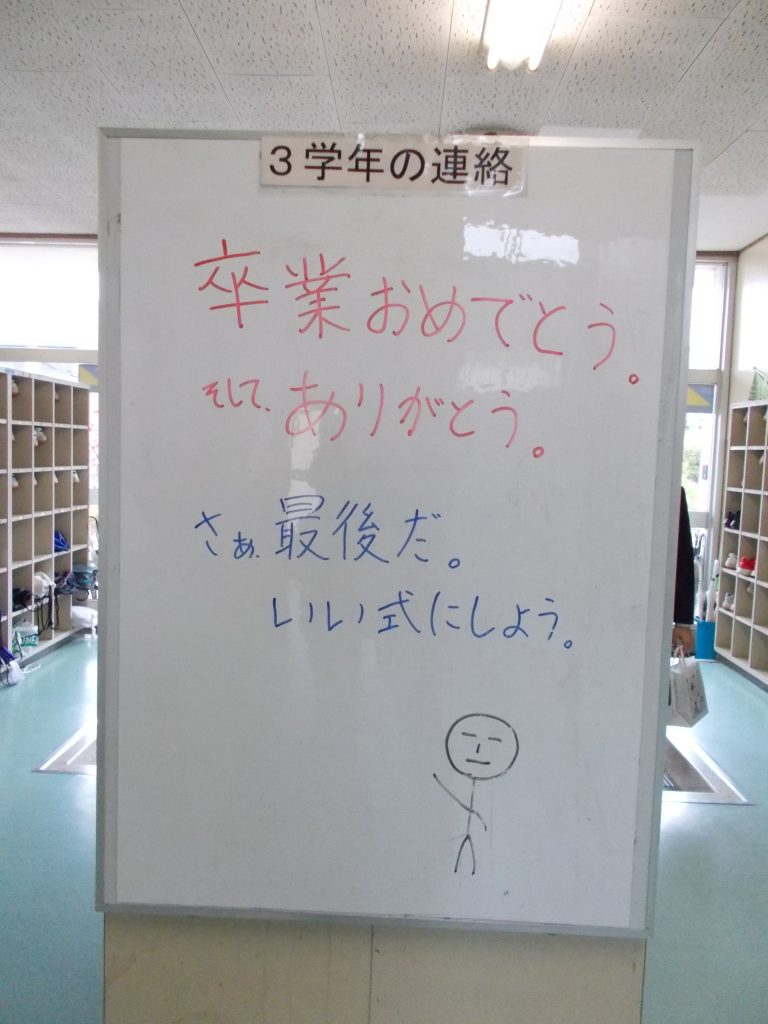 3学年の連絡
卒業おめでとう。
そして、ありがとう。
さぁ、最後だ。
いい式にしよう。